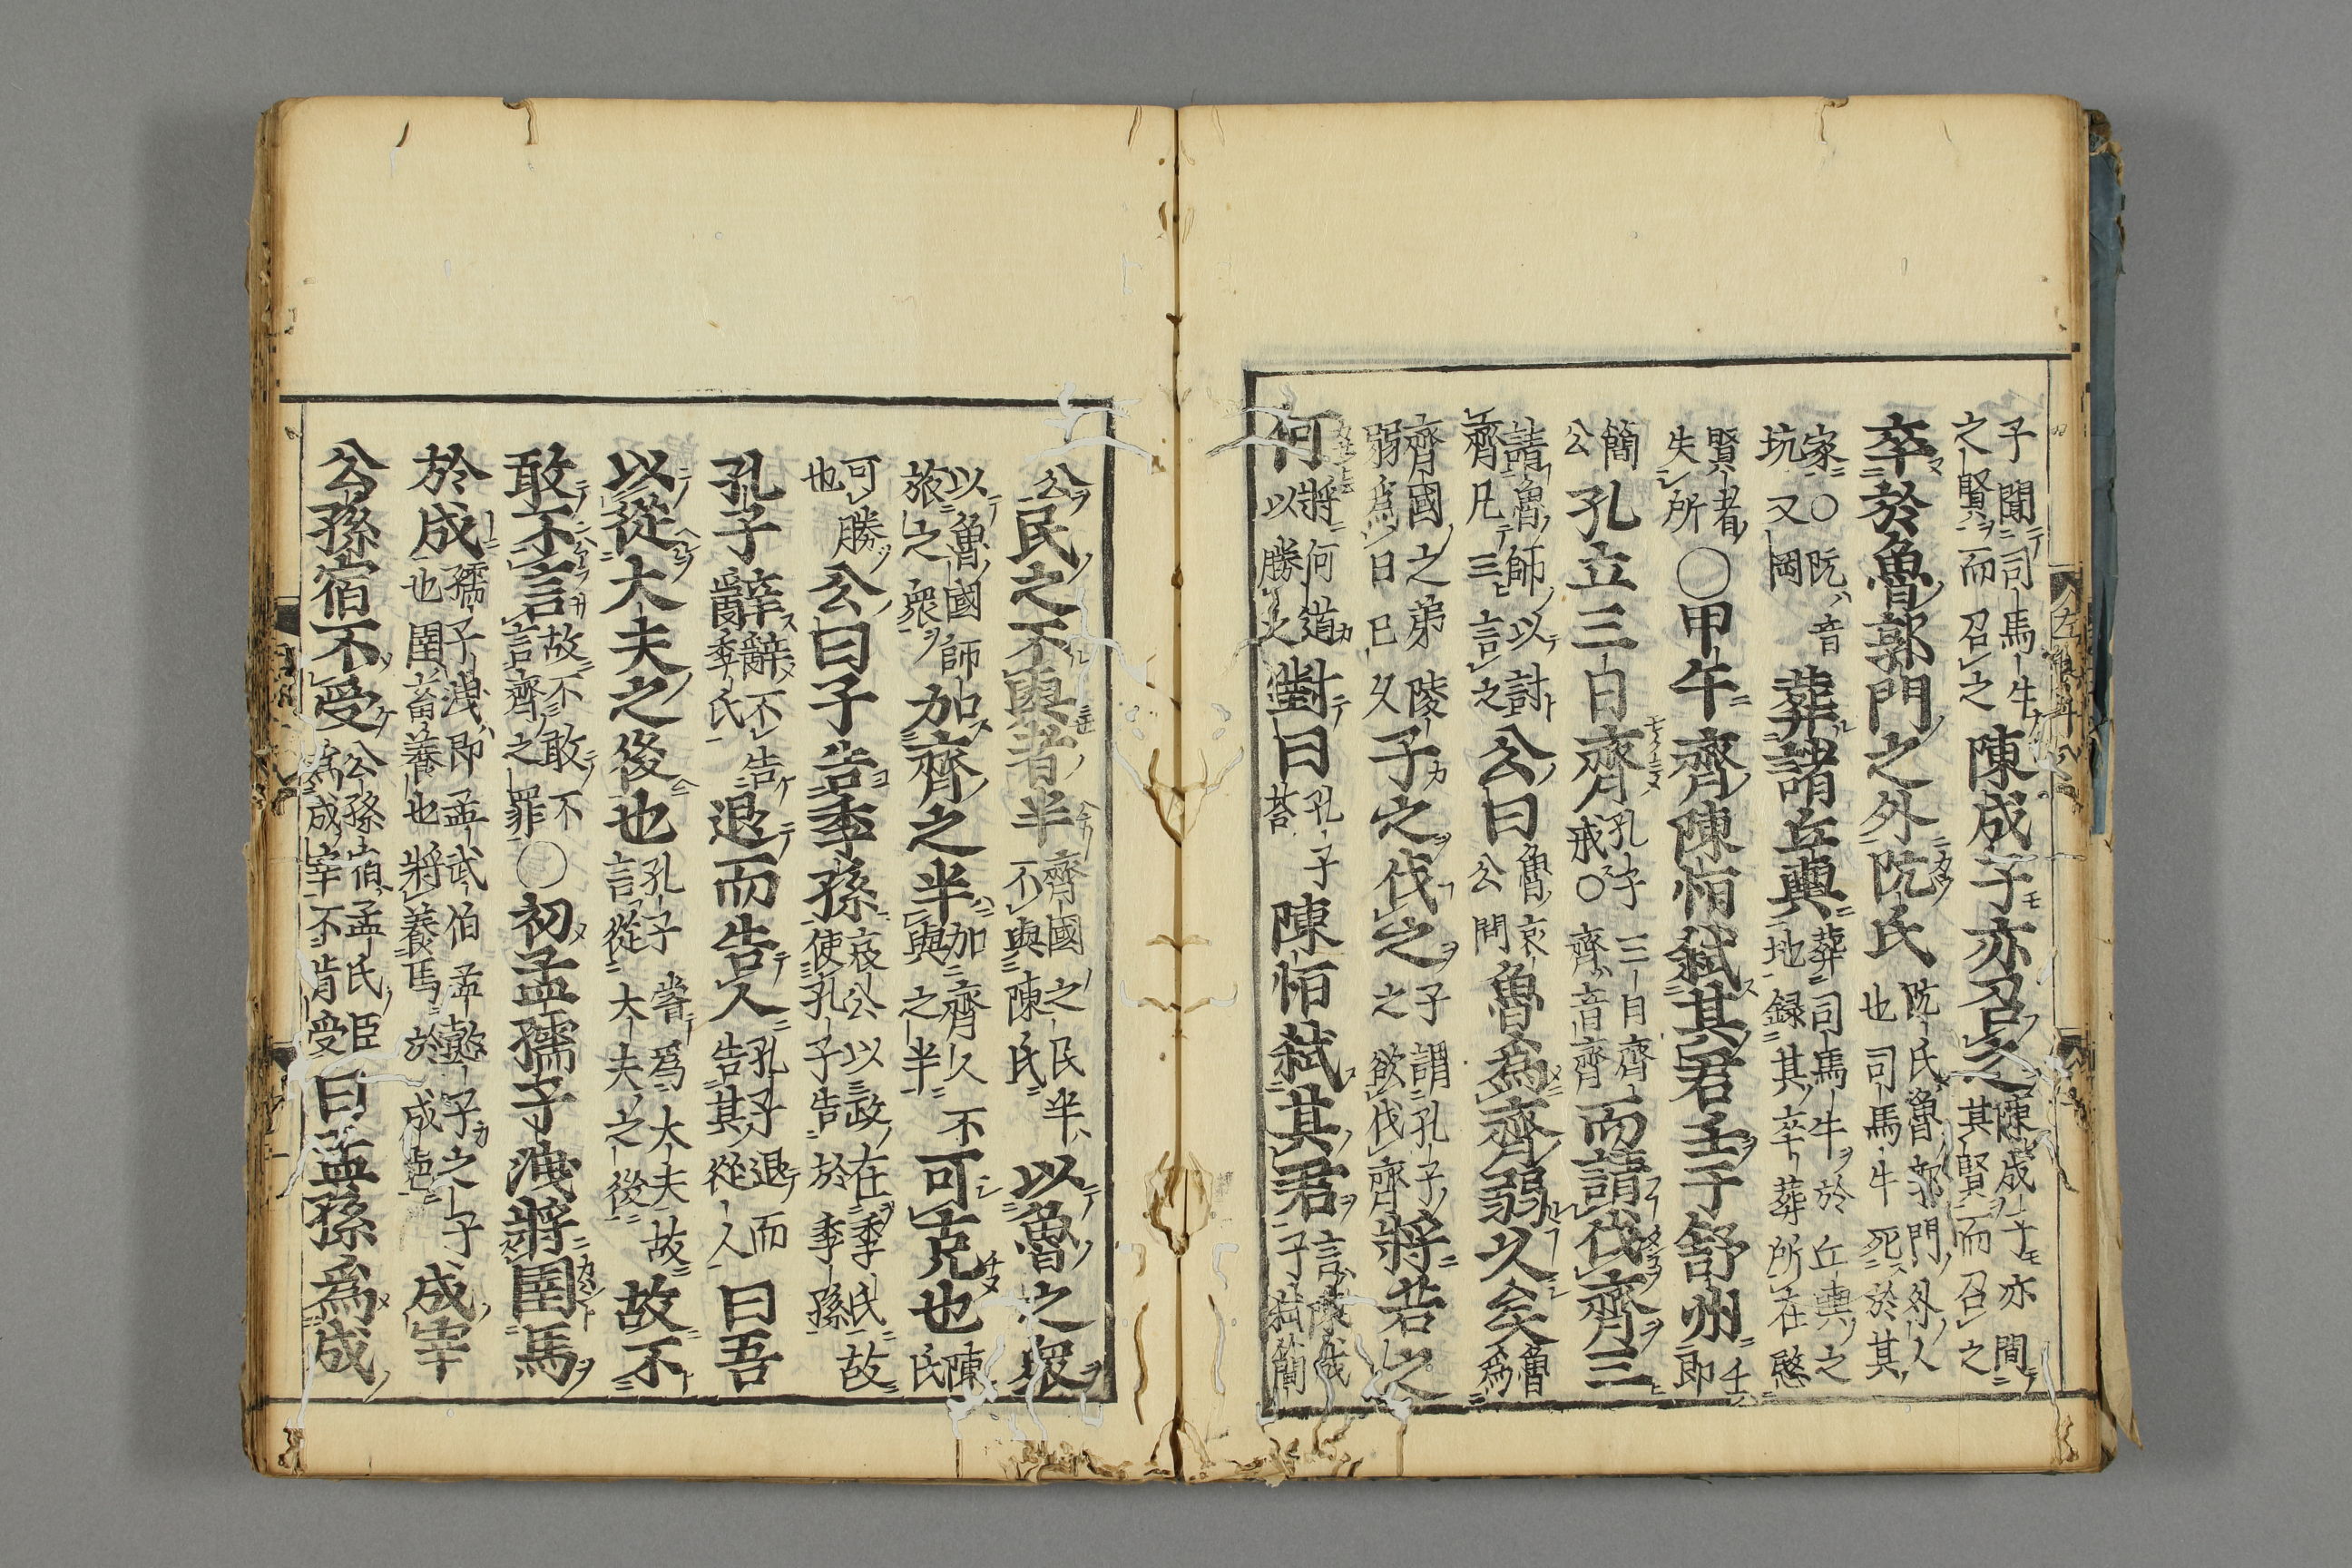 子聞司馬牛之賢而召之陳成子亦召之陳成子亦聞其賢而召之
卒於魯郭門之外阬氏阬氏魯郭門外人也司馬牛死於其
家〇阬音坑又岡葬諸丘輿葬司馬牛於丘輿之地録其卒葬所在愍
賢者失所〇甲午齊陳恒弑其君壬于舒州壬即
簡公孔丘三日齊孔子三日齊戒〇齊音齊而請伐齊三
請魯師以討齊凡三言之公曰魯哀公問魯爲齊弱久矣魯爲
齊國之弱爲日已久子之伐之子謂孔子之欲伐齊將若之
何將何道以勝之對曰孔子荅陳恒弑其君言陳成子弑簡
公民之不與者半齊國之民半不與陳氏以魯之衆
以魯國師旅之衆加齊之半加齊人不與之半可克也陳氏
可勝也公曰子告季孫哀公以政在季氏故使孔子告於季孫
孔子辭辭不告季氏退而告人孔子退而告其從人曰吾
以從大夫之後也孔子嘗爲大夫故言從大夫之後故不
敢不言故不敢不言齊之罪〇初孟孺子洩將圉馬
於成孺子洩即孟武伯孟懿子之子也圉畜養也將養馬於成邑成宰
公孫宿不受公孫宿孟氏臣爲成宰不肯受曰孟孫爲成